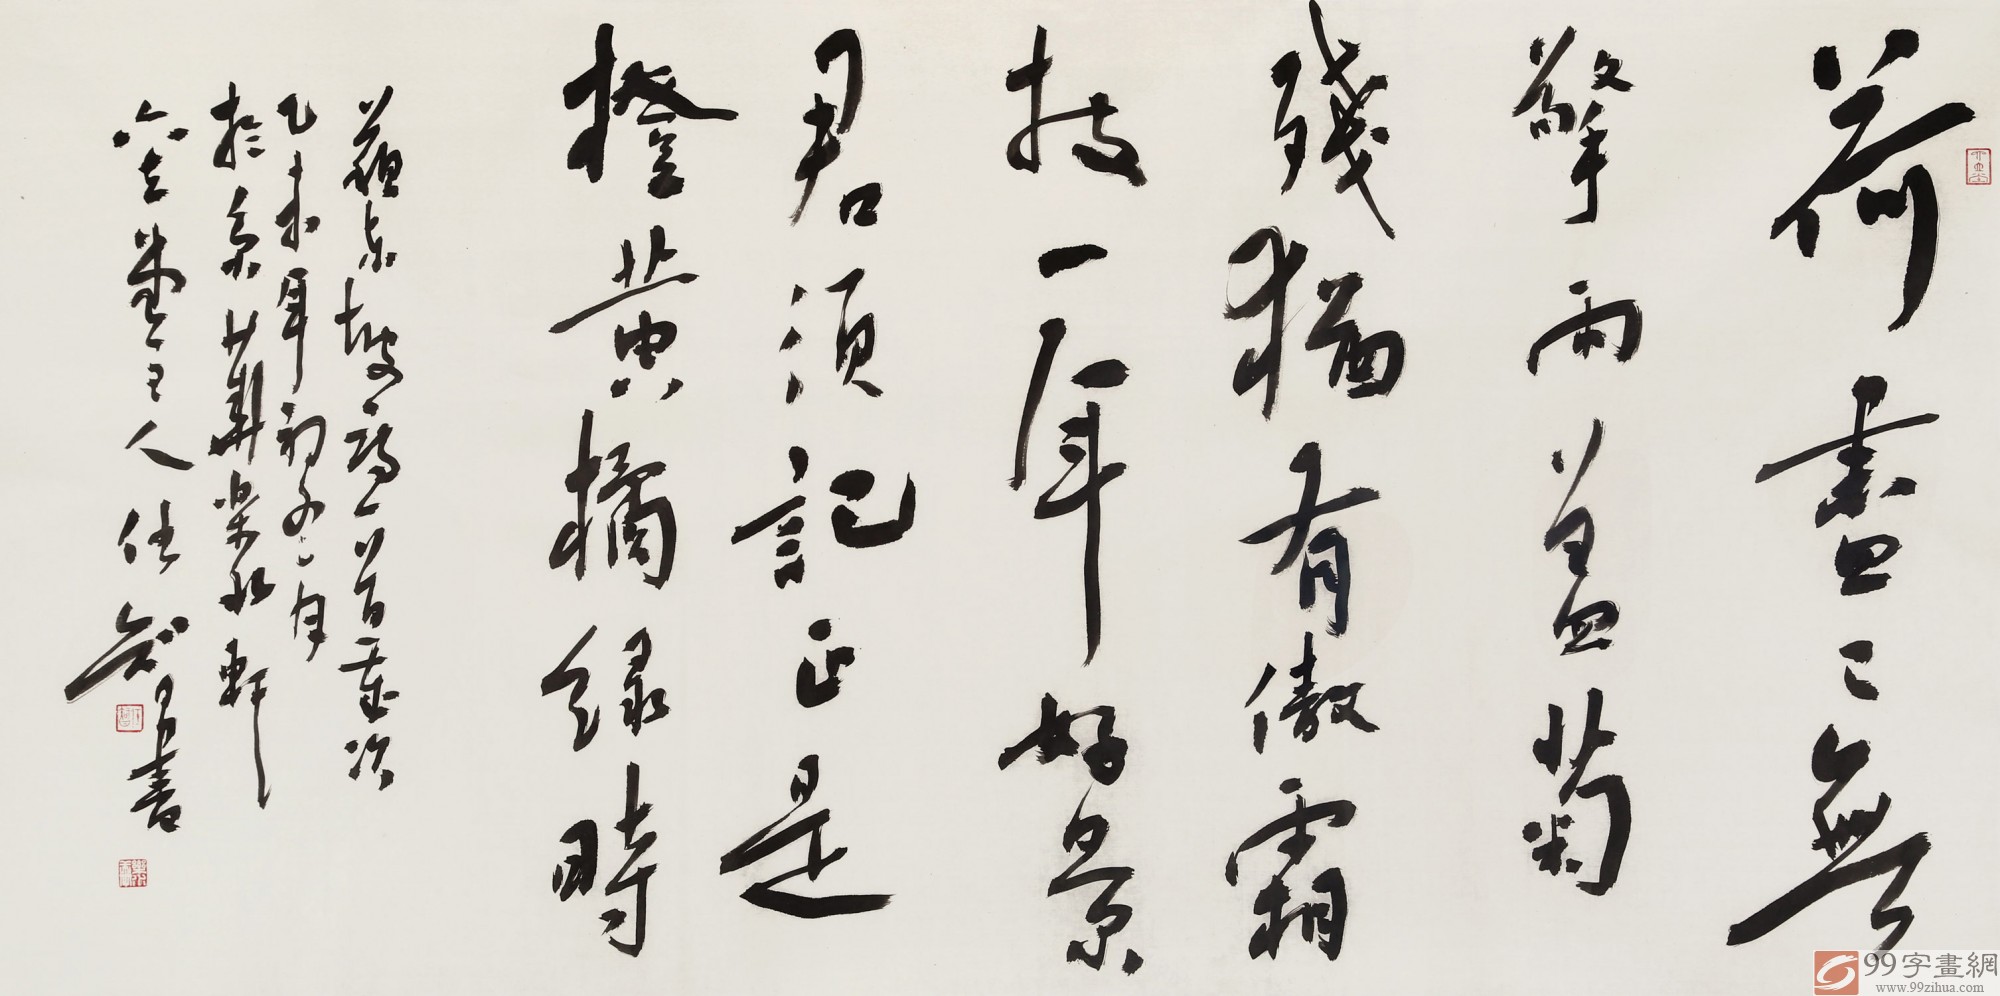 荷盡已無
擎雨蓋菊
殘猶有傲霜
枝一年好景
君須記正是
橙黄橘緑時
蘇東坡詩一首歲次
乙未年初冬之月
於京華樂水軒
堂主人任書
99字畫網
www.99zihua.com